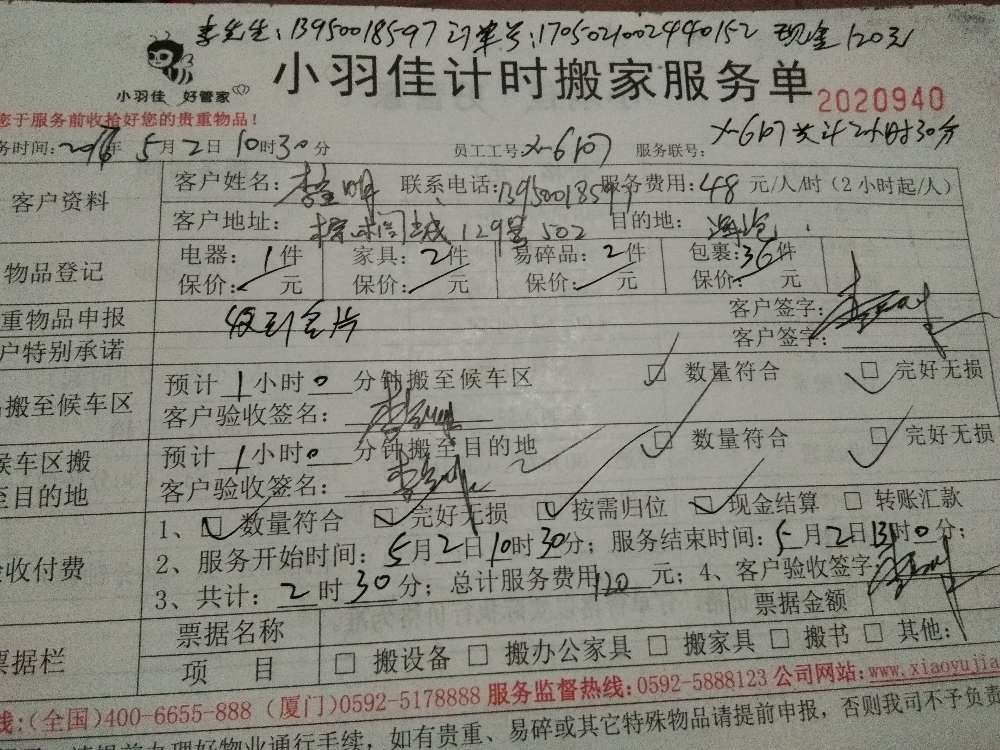 李先生：13950018597 订单号：1705021002440152 现金120元
小羽佳 好管家
小羽佳计时搬家服务单
2020940
您于服务前收拾好您的贵重物品！
务时间： 年 5月2日10时30分 员工工号：X-6107 服务联号： X-6107共计2小时30分
客户资料
客户姓名： 联系电话：13950018597 服务费用：48 元/人/时（2小时起/人）
客户地址： 城129号502 目的地：
物品登记
电器：1件 家具：2件 易碎品：2件 包裹：36件
保价： 元 保价： 元 保价： 元 保价： 元
重物品申报 收到名片 客户签字：
户特别承诺 客户签字：
搬至候车区
预计1小时0分钟搬至候车区 □ 数量符合 □ 完好无损
客户验收签名：
候车区搬
至目的地
预计1小时0分钟搬至目的地 □ 数量符合 □ 完好无损
客户验收签名：
验收付费
1、□ 数量符合 □ 完好无损 □ 按需归位 □ 现金结算 □ 转账汇款
2、服务开始时间：5月2日10时30分；服务结束时间：5月2日13时0分；
3、共计：2时30分；总计服务费用120元；4、客户验收签字：
票据栏
票据名称 票据金额
项 目 □ 搬设备 □ 搬办公家具 □ 搬家具 □ 搬书 □ 其他：
线：(全国)400-6655-888 (厦门)0592-5178888 服务监督热线：0592-5888123 公司网站：www.xiaoyujia
请提前办理好物业通行手续，如有贵重、易碎或其它特殊物品请提前申报，否则我司不予负责